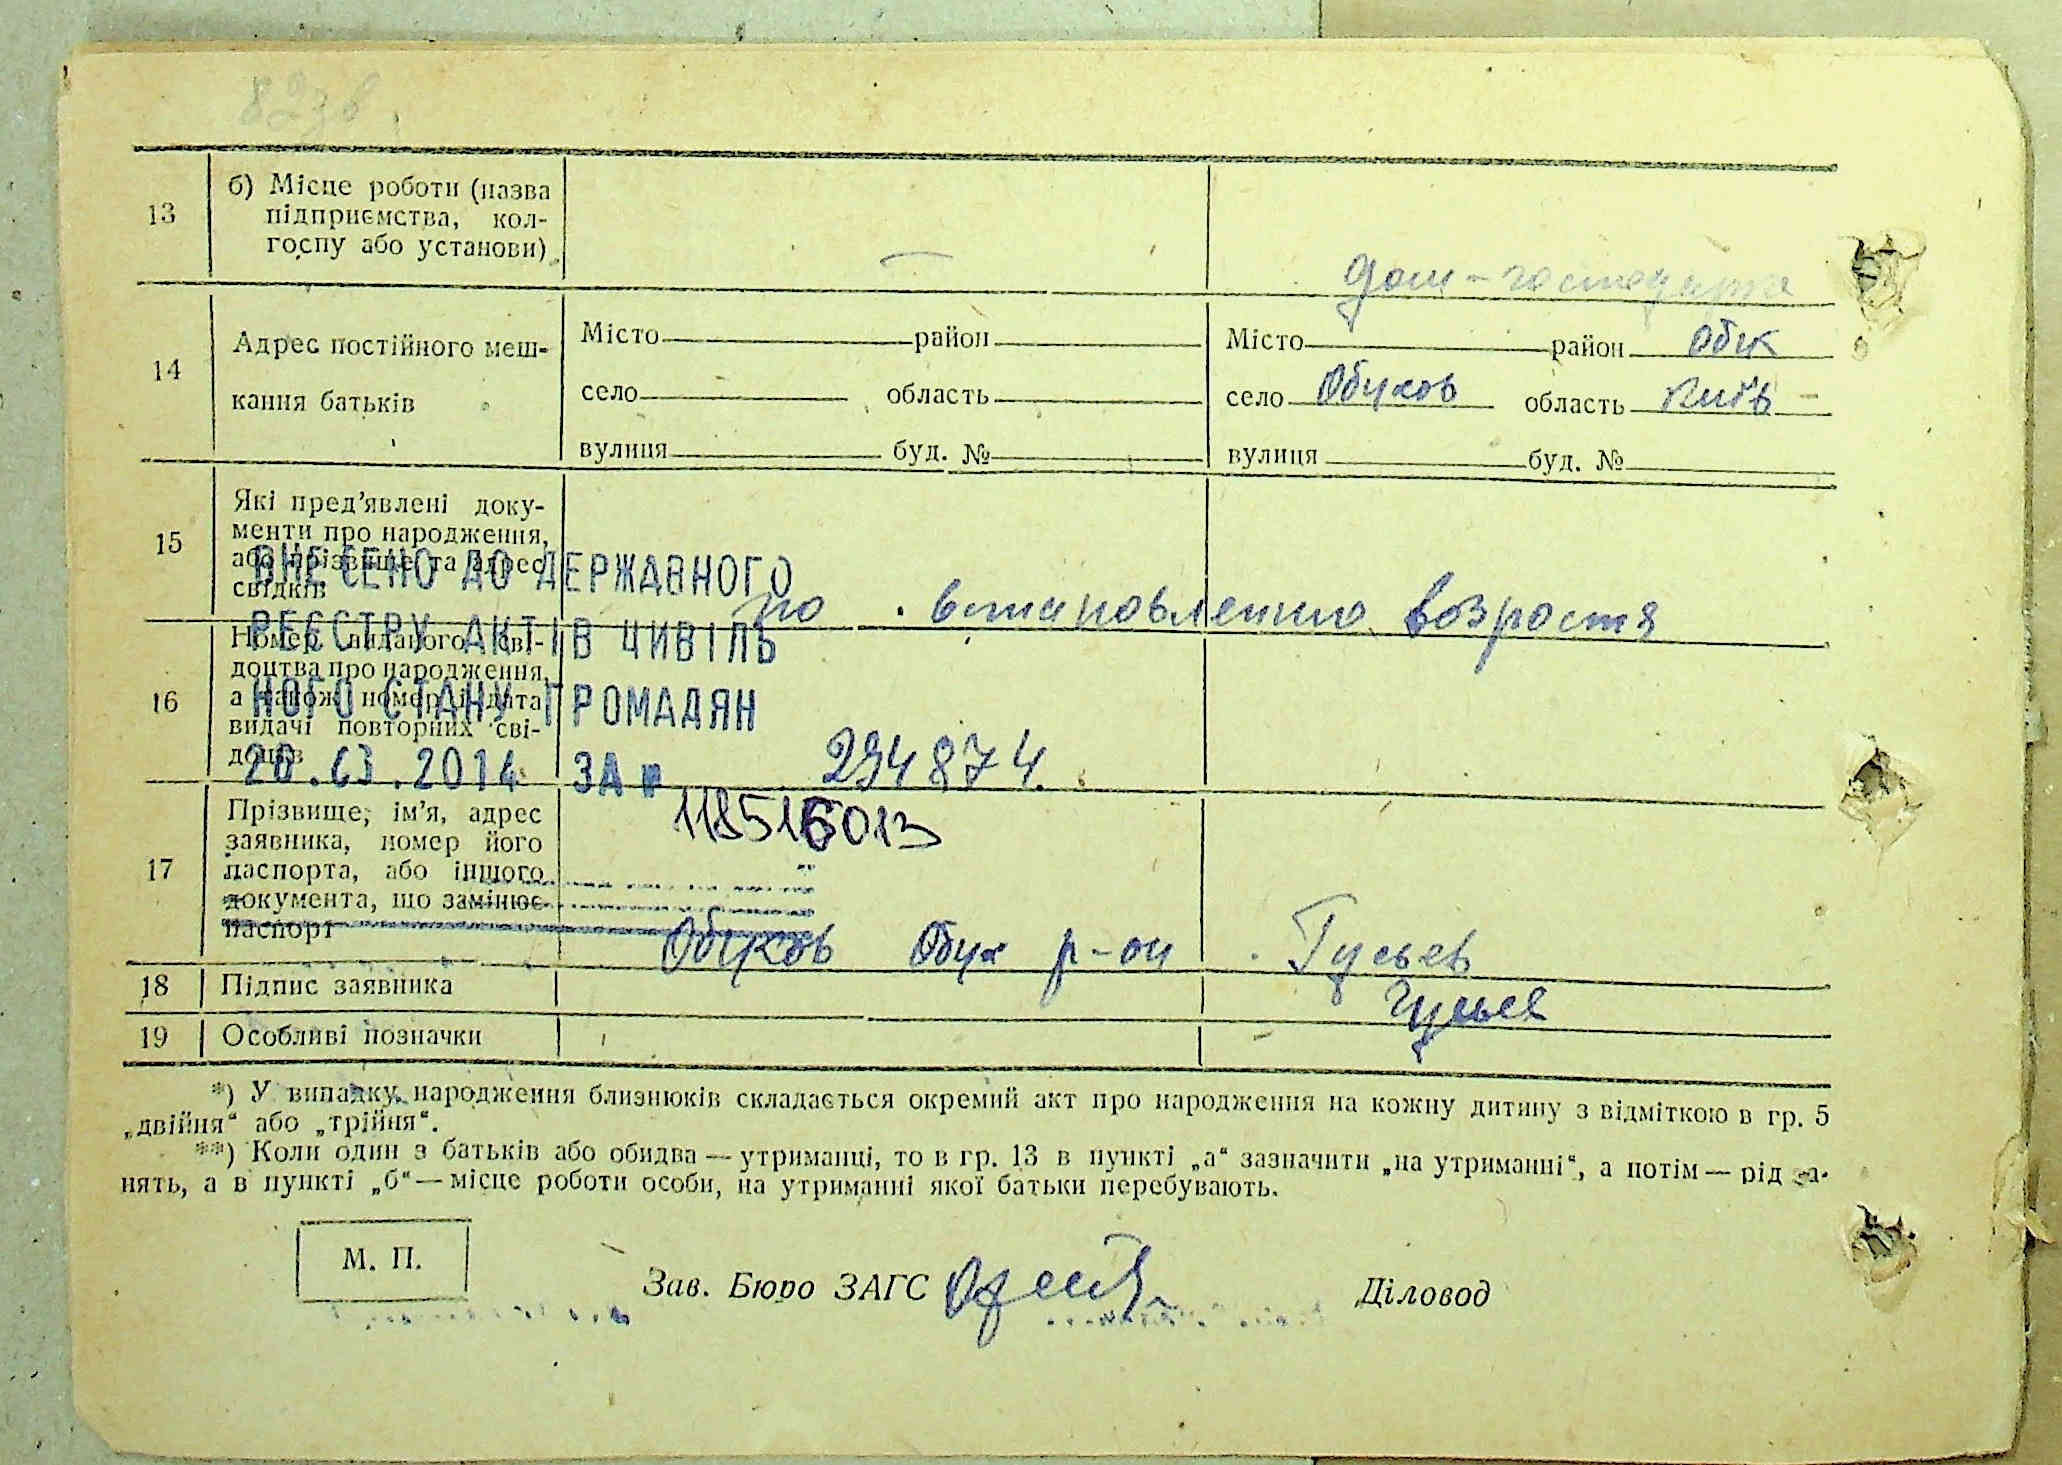 13
б) Місце роботи (назва
підприємства, кол-
госпу або установи)
—
дом-господарка
14
Адрес постійного меш-
кання батьків
Місто район
село область
вулиця буд. №
Місто район Обук
село Обухов область Київ -
вулиця буд. №
15
Які пред’явлені доку-
менти про народження,
або прізвище та адрес
свідків
по встановленню возроста
16
Номер виданого сві-
доцтва про народження,
а також номер і дата
видачі повторних сві-
доцтв
294874
ВНЕСЕНО ДО ДЕРЖАВНОГО
РЕЄСТРУ АКТІВ ЦИВІЛЬ
НОГО СТАНУ ГРОМАДЯН
20.03.2014 ЗА №
17
Прізвище, ім’я, адрес
заявника, номер його
паспорта, або іншого
документа, що замінює
паспорт
Обухов Обух р-он Гусьев
18
Підпис заявника
19
Особливі позначки
*) У випадку народження близнюків складається окремий акт про народження на кожну дитину з відміткою в гр. 5
„двійня“ або „трійня“.
**) Коли один з батьків або обидва — утриманці, то в гр. 13 в пункті „а“ зазначити „на утриманні“, а потім — рід за-
нять, а в пункті „б“ — місце роботи особи, на утриманні якої батьки перебувають.
М. П.
Зав. Бюро ЗАГС
Діловод